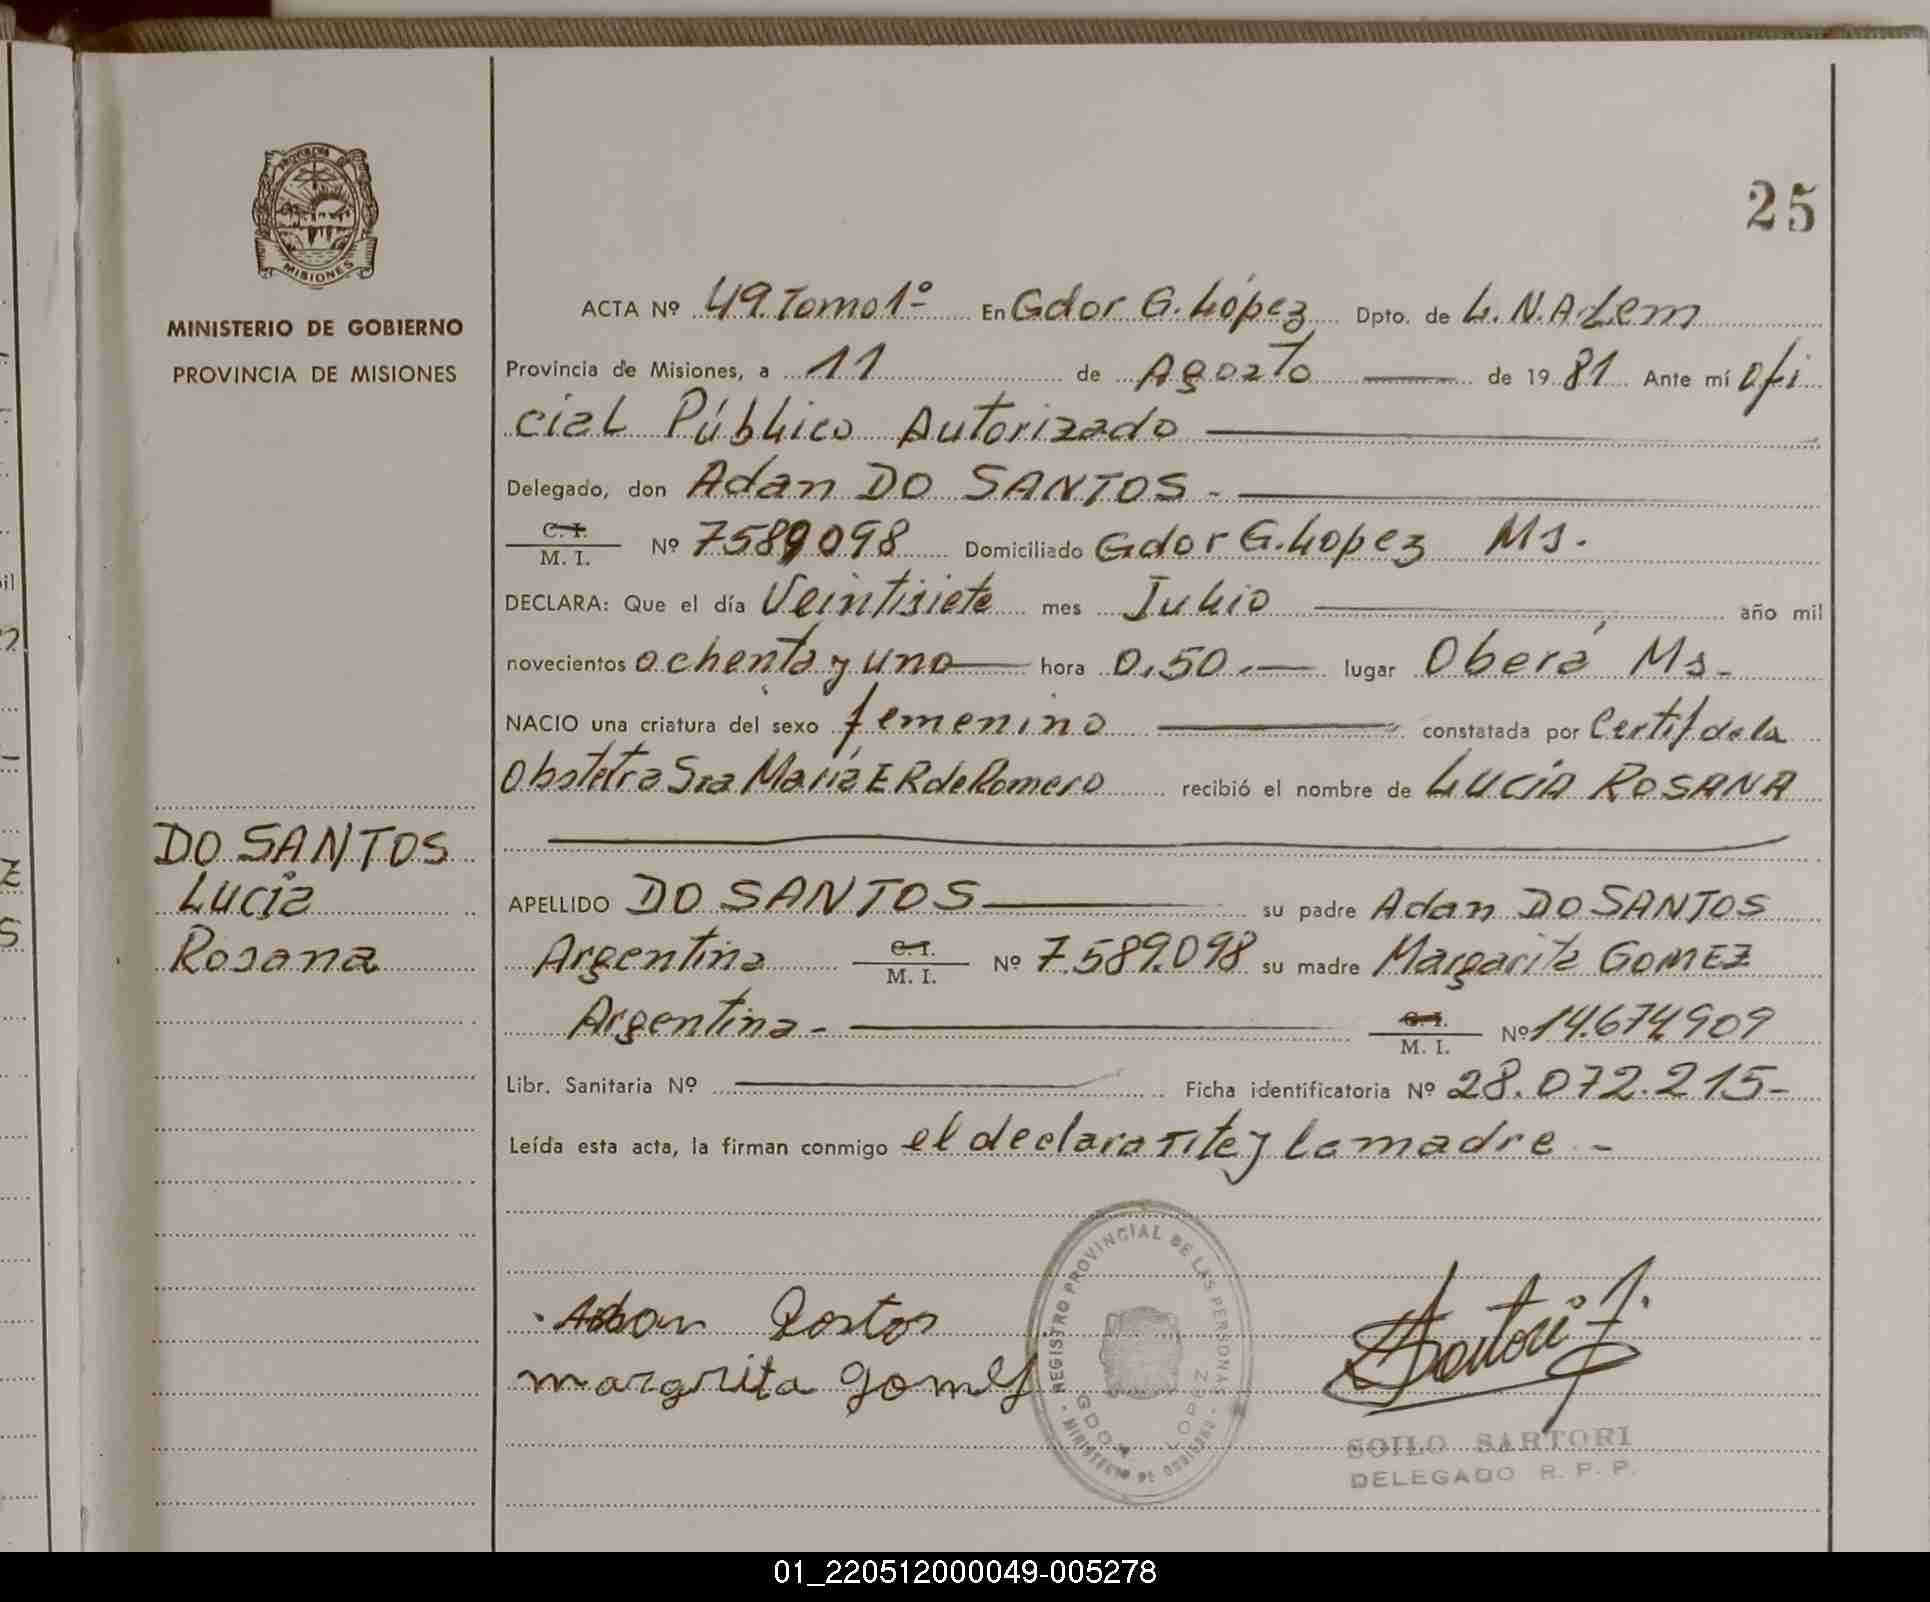 25
PROVINCIA DE
MISIONES
MINISTERIO DE GOBIERNO
PROVINCIA DE MISIONES
DO SANTOS
Lucia
Rosana
ACTA Nº 49. Tomo 1º En Gdor G. López Dpto. de L. N. Alem
Provincia de Misiones, a 11 de Agosto de 1981 Ante mí Ofi
cial Público Autorizado
Delegado, don Adan DO SANTOS -
C. I.
M. I. Nº 7589098 Domiciliado Gdor G. Lopez Ms.
DECLARA: Que el día Veintisiete mes Julio año mil
novecientos ochenta y uno hora 0,50 lugar Oberá Ms -
NACIO una criatura del sexo femenino constatada por Certif de la
Obstetra Sra María E R de Romero recibió el nombre de LUCIA ROSANA
APELLIDO DO SANTOS su padre Adan DO SANTOS
Argentina C. I.
M. I. Nº 7.589.098 su madre Margarita GOMEZ
Argentina - C. I.
M. I. Nº 14.674.909
Libr. Sanitaria Nº Ficha identificatoria Nº 28.072.215-
Leída esta acta, la firman conmigo el declarante y la madre -
margrita gomes
REGISTRO PROVINCIAL DE LAS PERSONAS
GDOR. LOPEZ
MINISTERIO DE GOBIERNO
SOILO SARTORI
DELEGADO R. P. P.
01_220512000049-005278